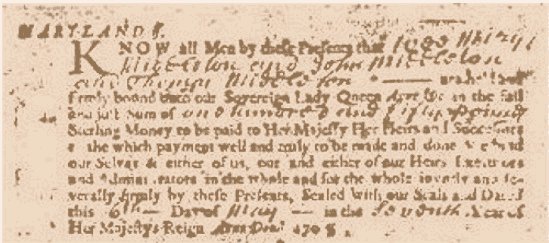 MARYLAND ß.
KNOW all Men by these Presents that
and John
and Thomas are held and
firmly bound unto our Sovereign Lady Queen Anne &c in the full
and just Sum of one hundred and fifty Pounds
Sterling Money to be paid to Her Majesty Her Heirs and Successors
the which payment well and truly to be made and done We bind
our Selves & either of us, our and either of our Heirs Executors
and Administrators in the whole and for the whole joyntly and se-
verally firmly by these Presents, Sealed with our Seals and Dated
this 6th Day of May in the Seventh Year of
Her Majestys Reign Anno Dom! 1708.